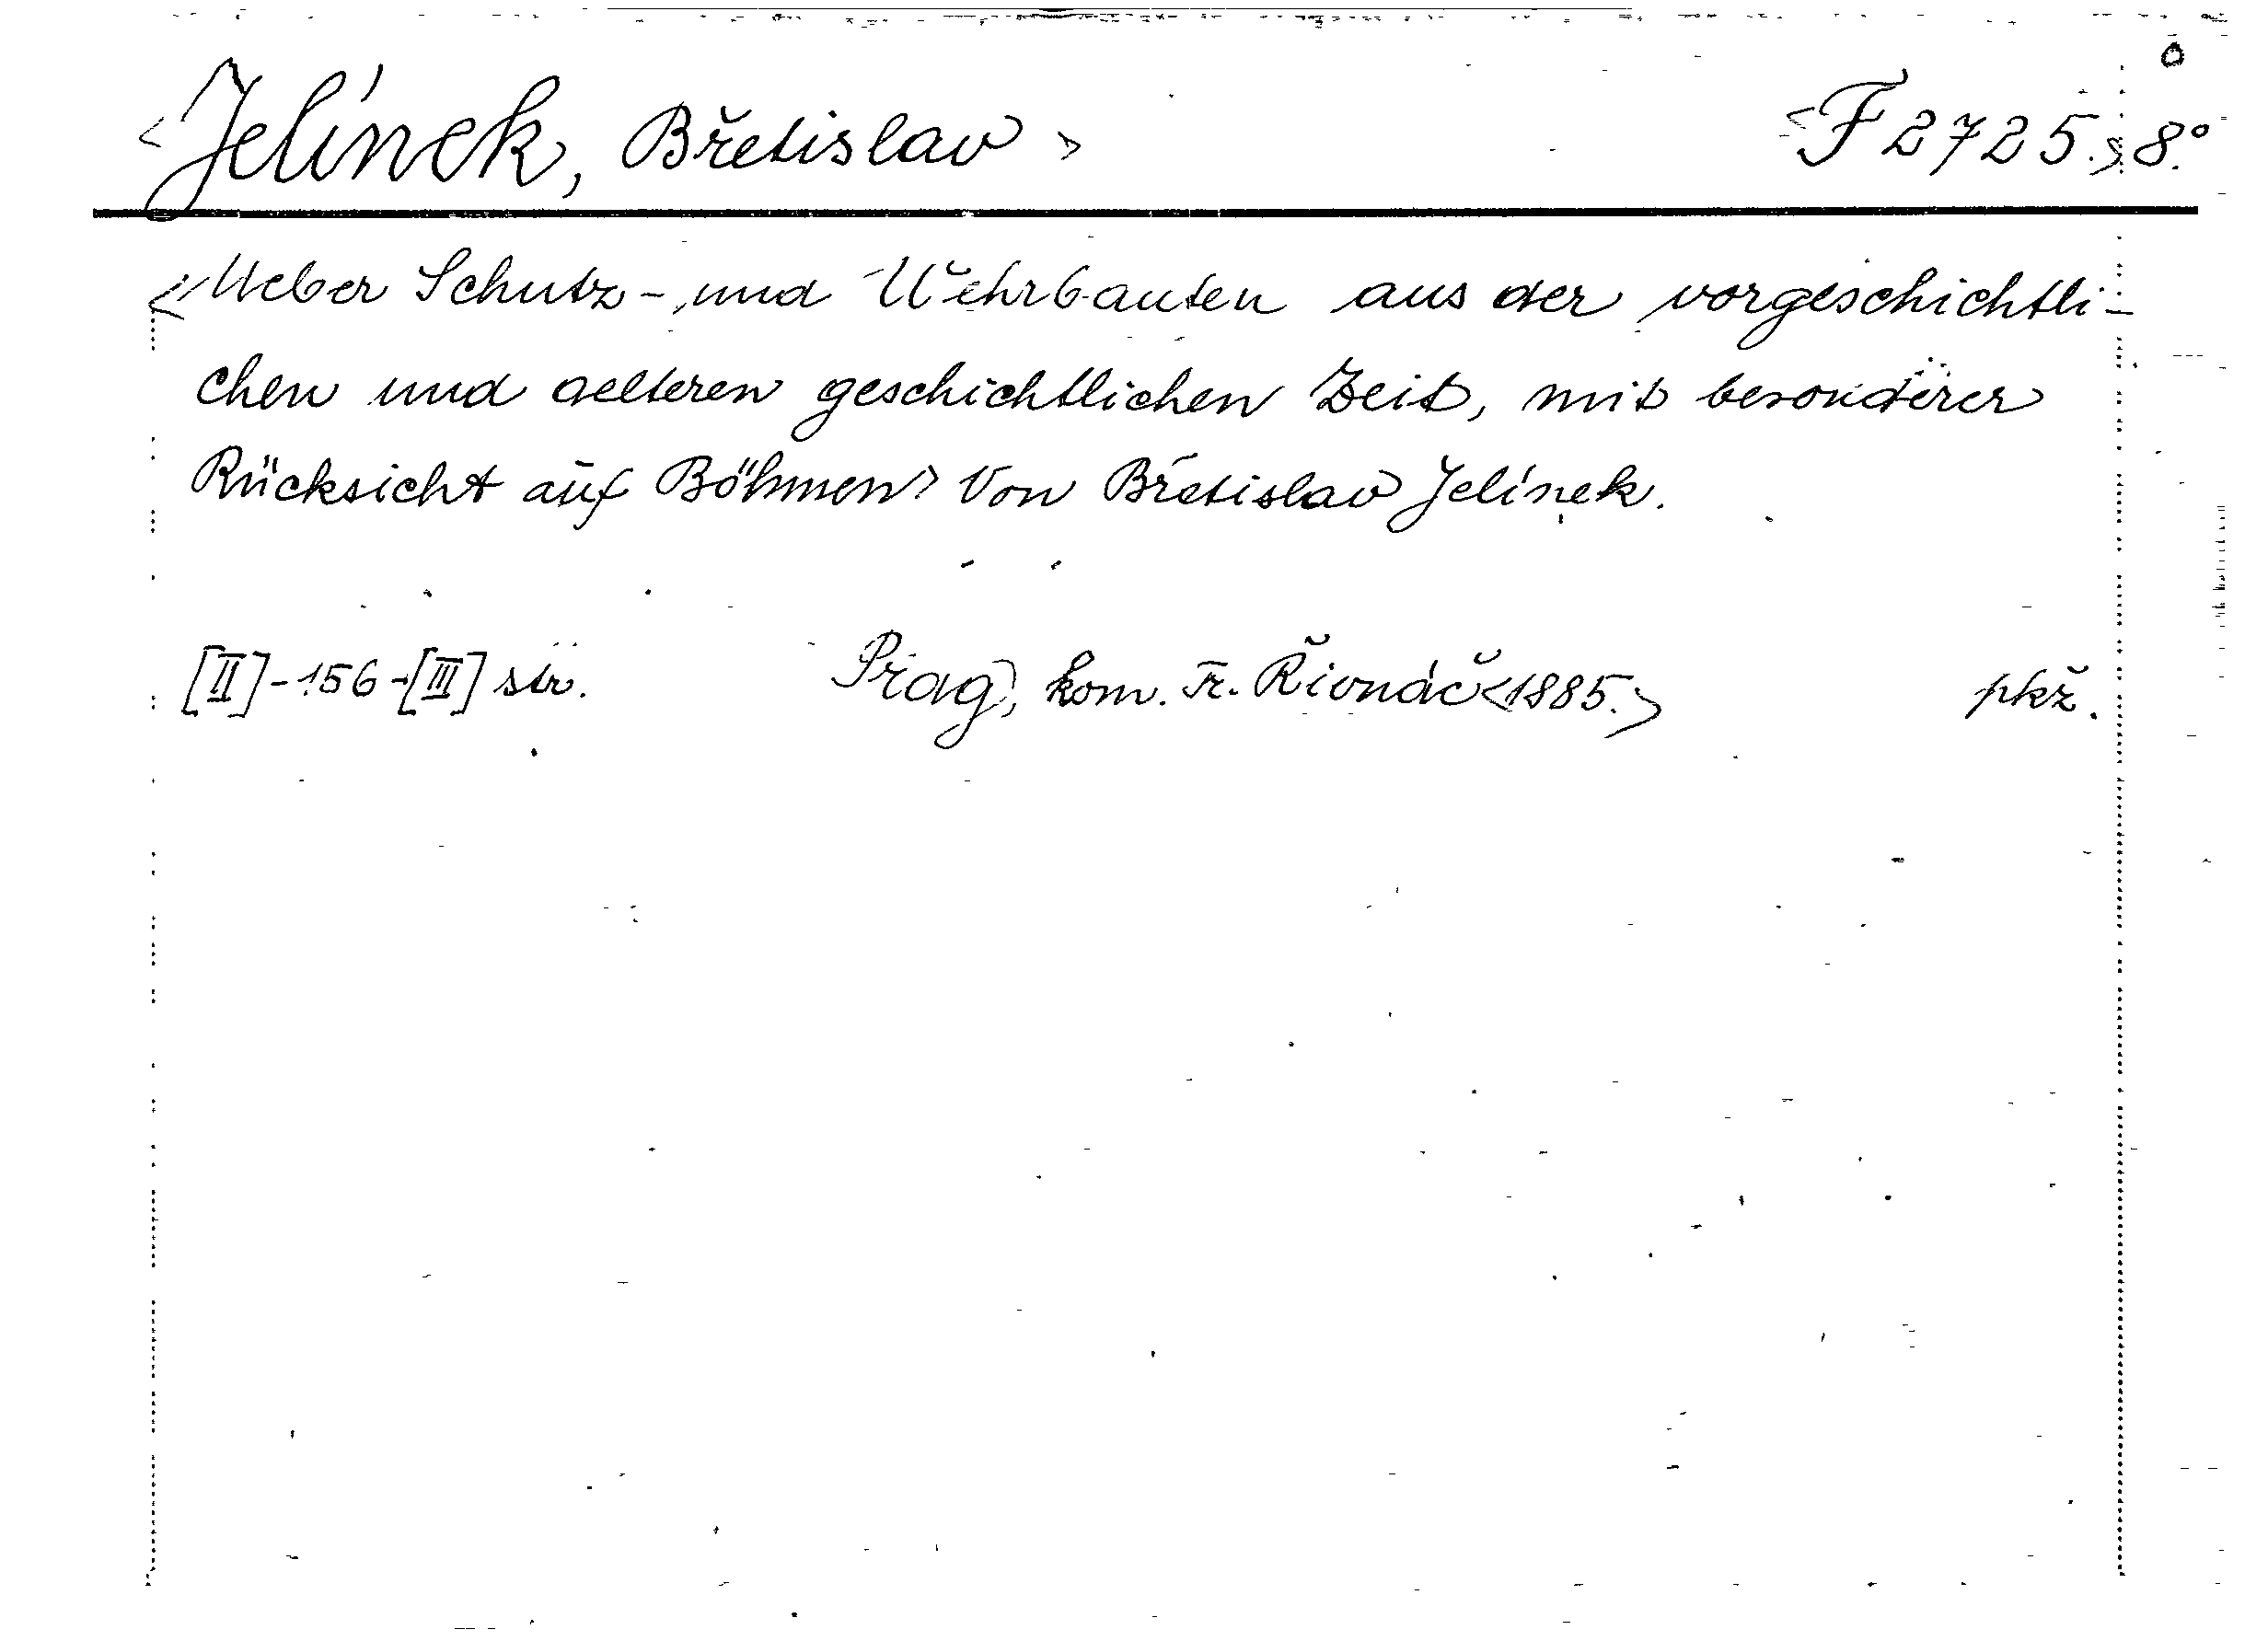 <Jelínek, Břetislav> <F 2725.> 8.°
<Ueber Schutz- und Wehrbauten aus der vorgeschichtli-
chen und aelteren geschichtlichen Zeit, mit besonderer
Rücksicht auf Böhmen> Von Břetislav Jelínek.
[II]-156-[III] str. Prag, kom. Fr. Řivnáč <1885.> pkž.